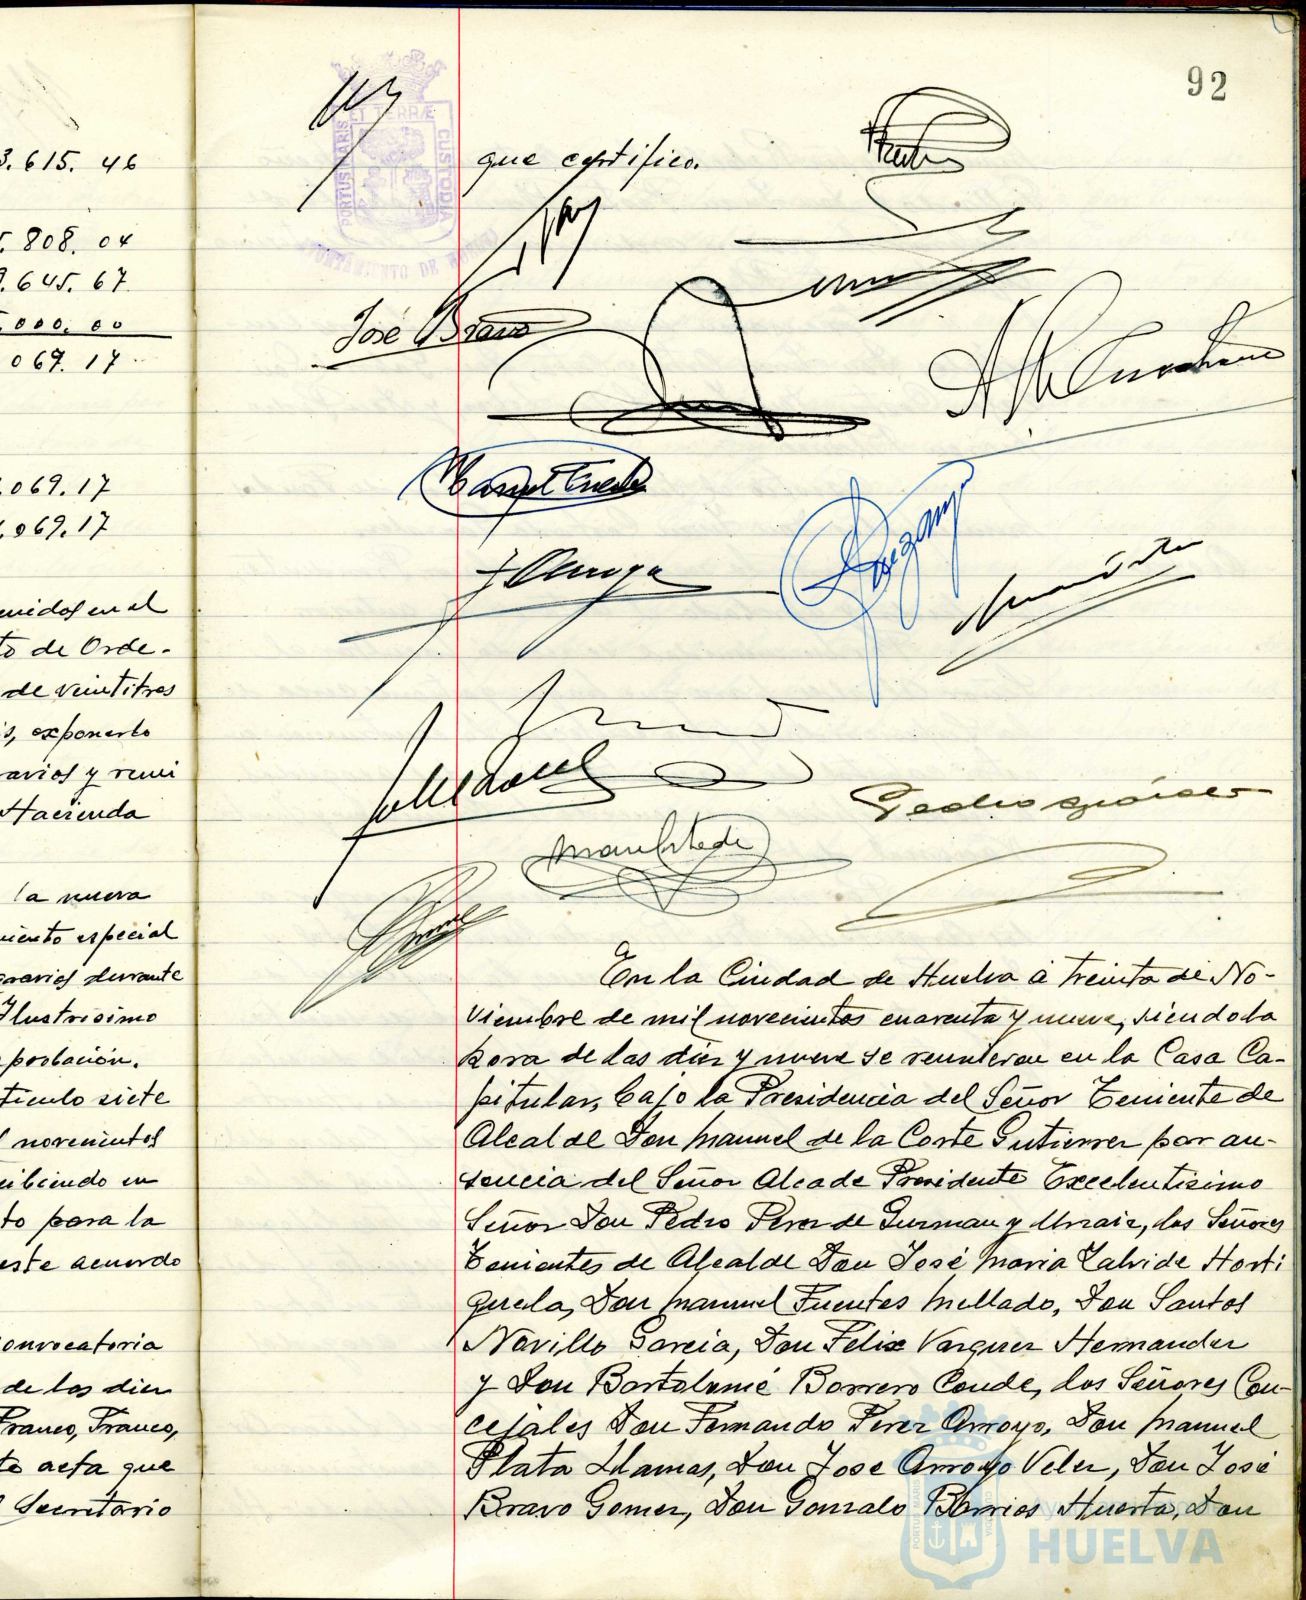 92
3.615.46
808.04
.645.67
.000.00
069.17
.069.17
.069.17
enidos en el
to de Orde-
de veintitres
s, exponerlo
ravios y remi
Hacienda
la nueva
miento especial
gravios durante
Ilustrisimo
poblacion.
ticulo siete
novecientos
cibiendo en
to para la
este acuerdo
convocatoria
de las diez
Franco, Franco,
te acta que
Secretario
PORTUS MARIS ET TERRÆ CUSTODIA
AYUNTAMIENTO DE HUELVA
que certifico.
José Bravo
Manuel Fuentes
En la Ciudad de Huelva á treinta de No-
viembre de mil novecientos cuarenta y nueve, siendo la
hora de las diez y nueve se reunieron en la Casa Ca-
pitular, bajo la Presidencia del Señor Teniente de
Alcalde Don Manuel de la Corte Gutierrez por au-
sencia del Señor Alcade Presidente Excelentisimo
Señor Don Pedro Perez de Guzman y Urzaiz, los Señores
Tenientes de Alcalde Don José Maria Zalvide Horti
guela, Don Manuel Fuentes Mellado, Don Santos
Novillo Garcia, Don Felix Vazquez Hernandez
y Don Bartolomé Borrero Conde, los Señores Con-
cejales Don Fernando Perez Arroyo, Don Manuel
Plata Llamas, Don Jose Arroyo Velez, Don José
Bravo Gomez, Don Gonzalo Barrios Huerta, Don
HUELVA